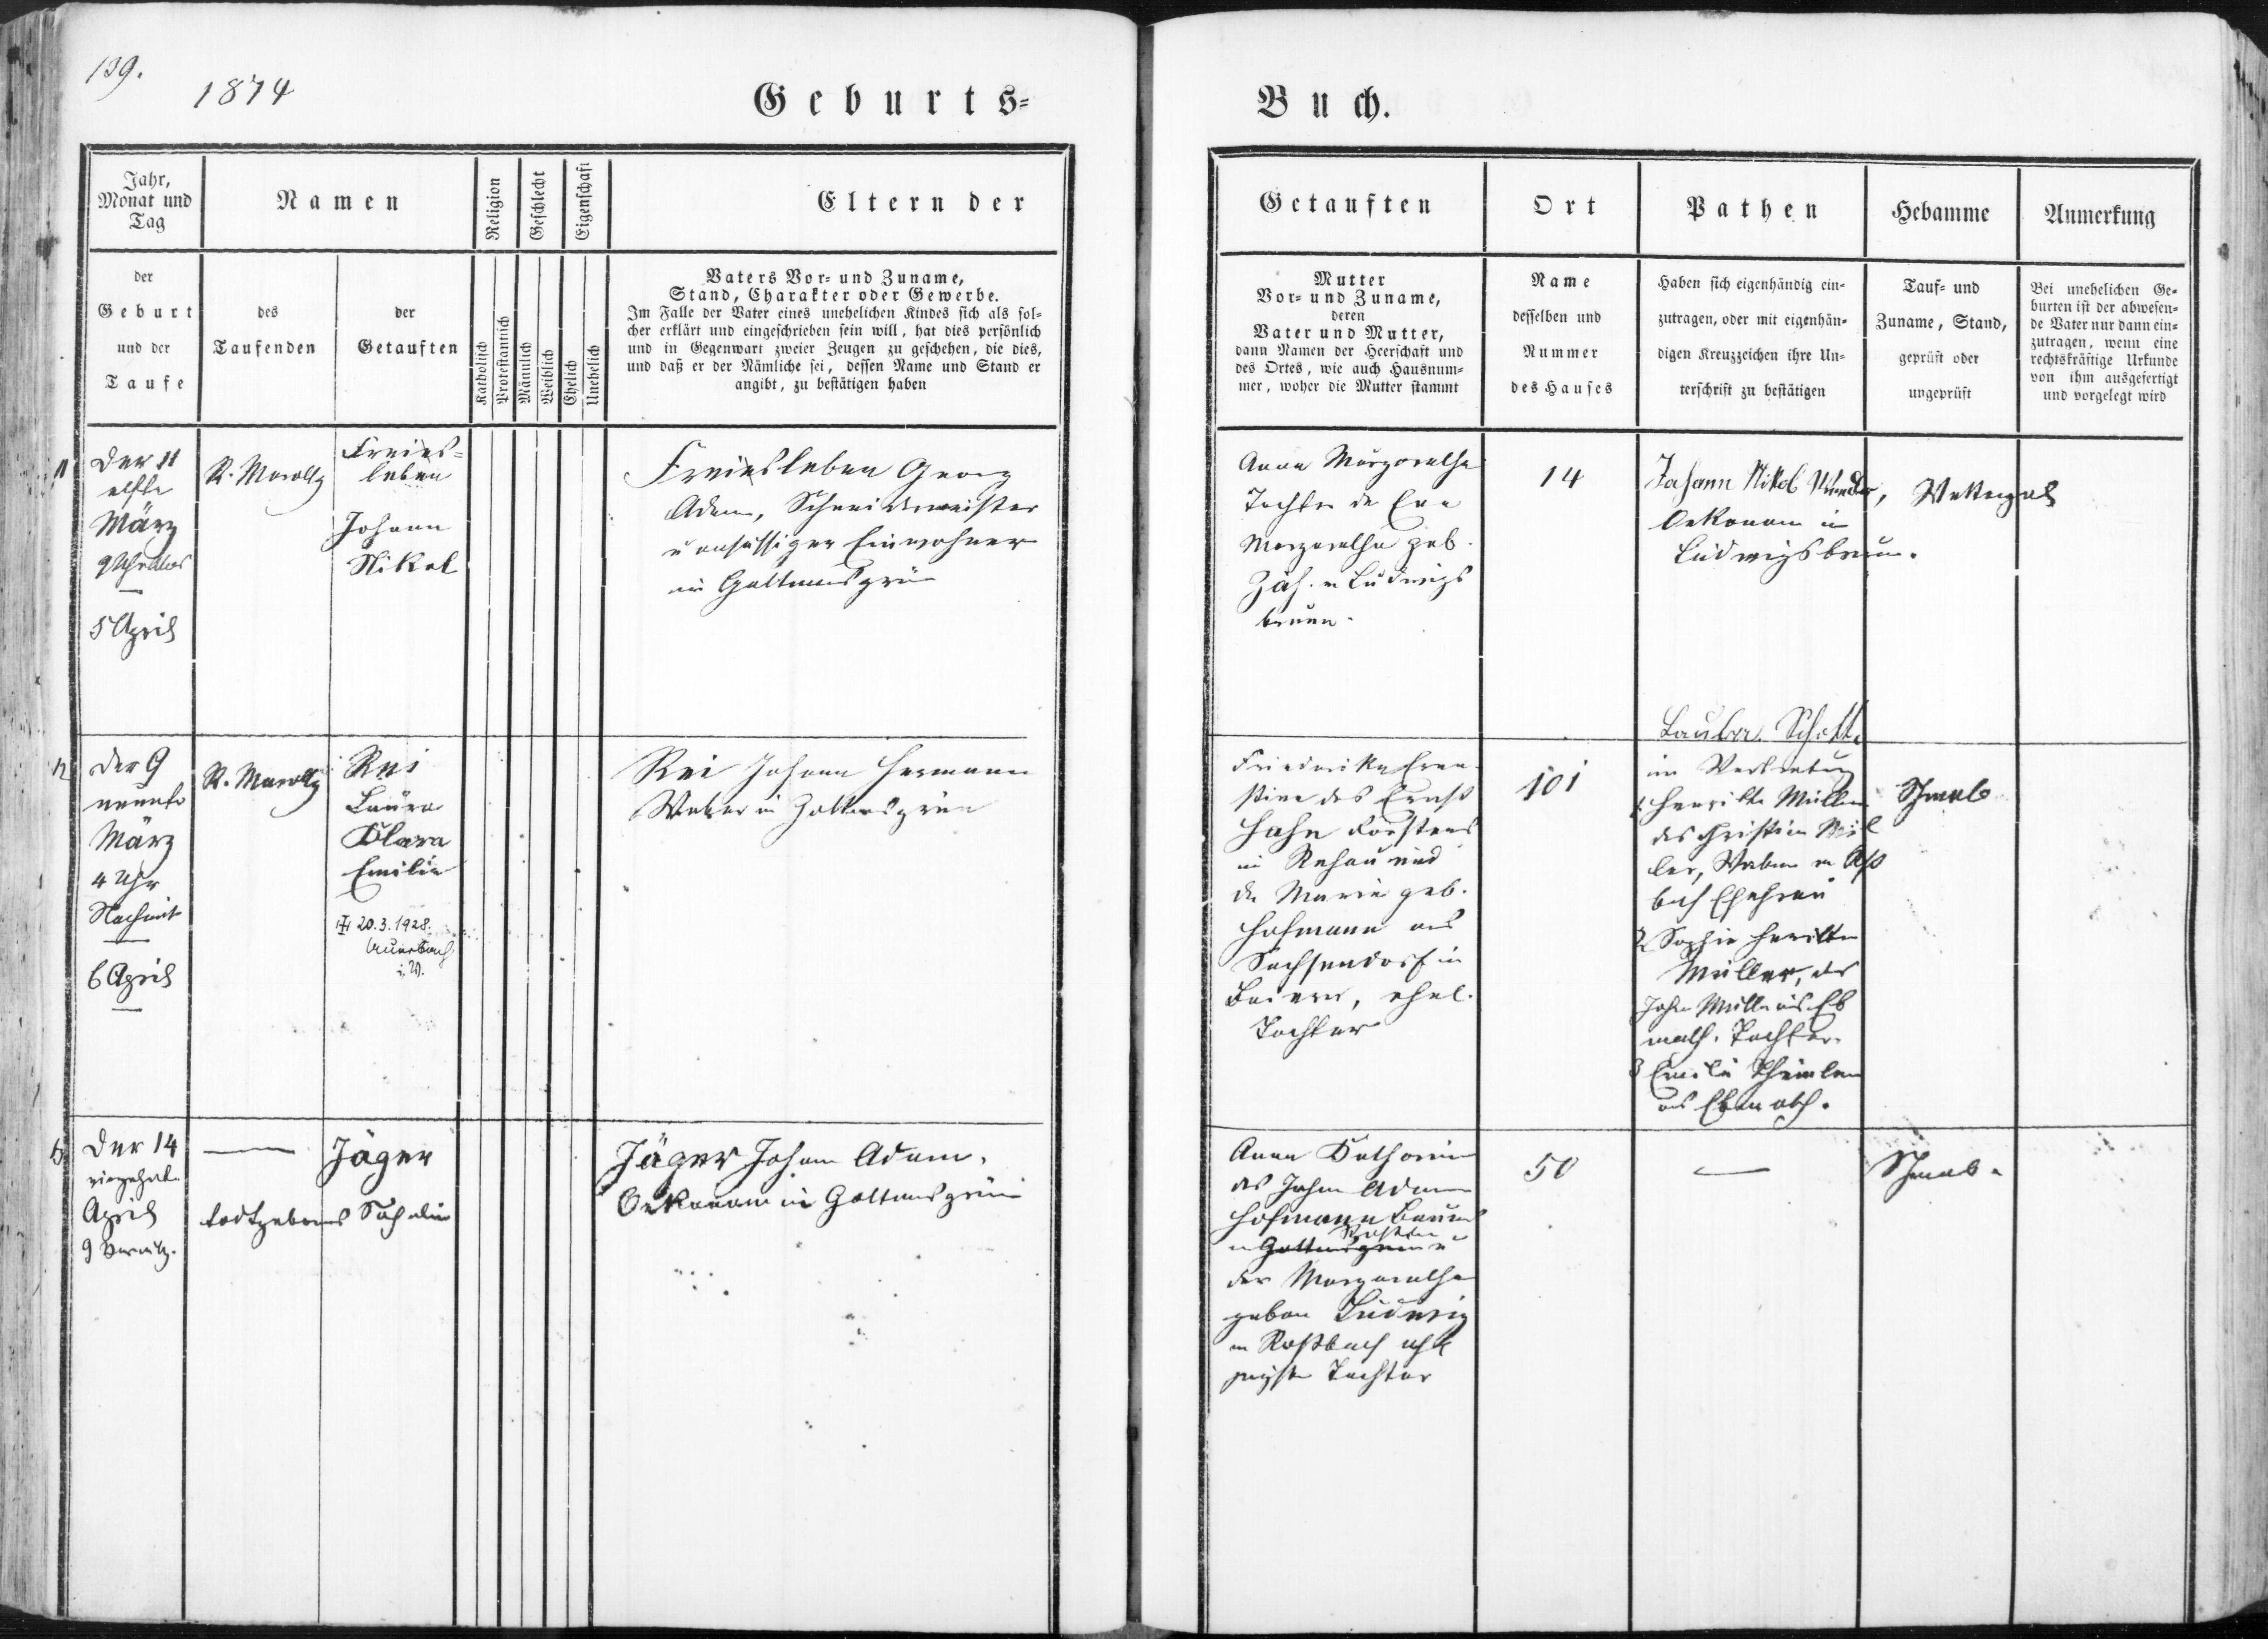 139.
1874
Geburts=
Jahr,
Monat und
Tag
Namen
Religion
Geschlecht
Eigenschaft
Eltern der
der
Geburt
und der
Taufe
des
Taufenden
der
Getauften
Katholisch
Protestantisch
Männlich
Weiblich
Ehelich
Unehelich
Vaters Vor- und Zuname,
Stand, Charakter oder Gewerbe.
Im Falle der Vater eines unehelichen Kindes sich als sol-
cher erklärt und eingeschrieben sein will, hat dies persönlich
und in Gegenwart zweier Zeugen zu geschehen, die dies,
und daß er der Nämliche sei, dessen Name und Stand er
angibt, zu bestätigen haben
11
Der 11
elfte
März
5 April
Freies=
leben
Johann
Nikol
Freiesleben Georg
Adam, Schneidermeister
u ansässiger Einwohner
in Gottmannsgrün
12
Der 9
neunte
März
4 Uhr
Nachmit
6 April
Rei
Laura
Klara
Emilie
20.3.1928.
Auerbach
i. V.
Rei Johann Hermann
Weber in Gottmansgrün
13
Der 14
vierzehnte
April
9 Vormitg.
Jäger
todtgebornes Söhnlein
Jäger Johann Adam,
Oekonom in Gottmansgrün
Buch.
Getauften
Ort
Pathen
Hebamme
Anmerkung
Mutter
Vor- und Zuname,
deren
Vater und Mutter,
dann Namen der Heerschaft und
des Ortes, wie auch Hausnum-
mer, woher die Mutter stammt
Name
desselben und
Nummer
des Hauses
Haben sich eigenhändig ein-
zutragen, oder mit eigenhän-
digen Kreuzzeichen ihre Un-
terschrift zu bestätigen
Tauf- und
Zuname, Stand,
geprüft oder
ungeprüft
Bei unehelichen Ge-
burten ist der abwesen-
de Vater nur dann ein-
zutragen, wenn eine
rechtskräftige Urkunde
von ihm ausgefertigt
und vorgelegt wird
Anna Margaretha
Tochter der Eva
Margaretha geb.
in Ludwigs
brunn.
14
Johann Nikol
Oekonom in
Ludwigsbrunn.
Friederika Erne-
stine des Ernst
Hahn Försters
in Rehau und
der Marie geb.
Hofmann aus
Sachsendorf in
Baiern, ehel.
Tochter
101
in Vertretung
1. Henriette Müller
des Christian Mül
ler, Weber in Ro߬
bach Ehefrau
2 Sophie Henriette
Müller, des
Johann Müller aus Eb
math. Tochter.
3 Emilie
aus Ebmath.
Schwab
Anna Katharina
des Johann Adam
Hofmann Bauer
in Gottmansgrün u
der Margaretha
geborn Ludwig
in Roßbach
Tochter
50
Schwab.